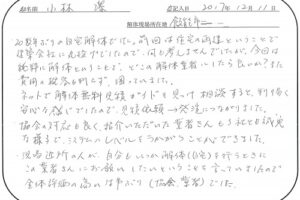 お名前 小林 澤 ご記入日 2017年12月11日
解体現場所在地
20数年ぶりの自宅解体でした。前回は住宅の両様ということで
建築会社に丸投げでしたので、何も考えませんでしたが、今回は
純粋に解体ということで、どこの解体業者にいくらで良いか?また
費用の概略も判らず、困っていました。
ネットで解体無料見積ガイドを見つけ相談すると、判り易く
安心な感じでしたので、見積依頼→発注につながりました。
協会の対応も良く、紹介いただいた業者さんも3社とも誠実
な様子で、システムのレベルもうかがうことができました。
現場近所の人が、自分もいつか解体(自宅)を行うときに
この業者さんにお願いしたいということも言っていましたので
全体評価の高い仕事ぶり(協会、業者)でした。